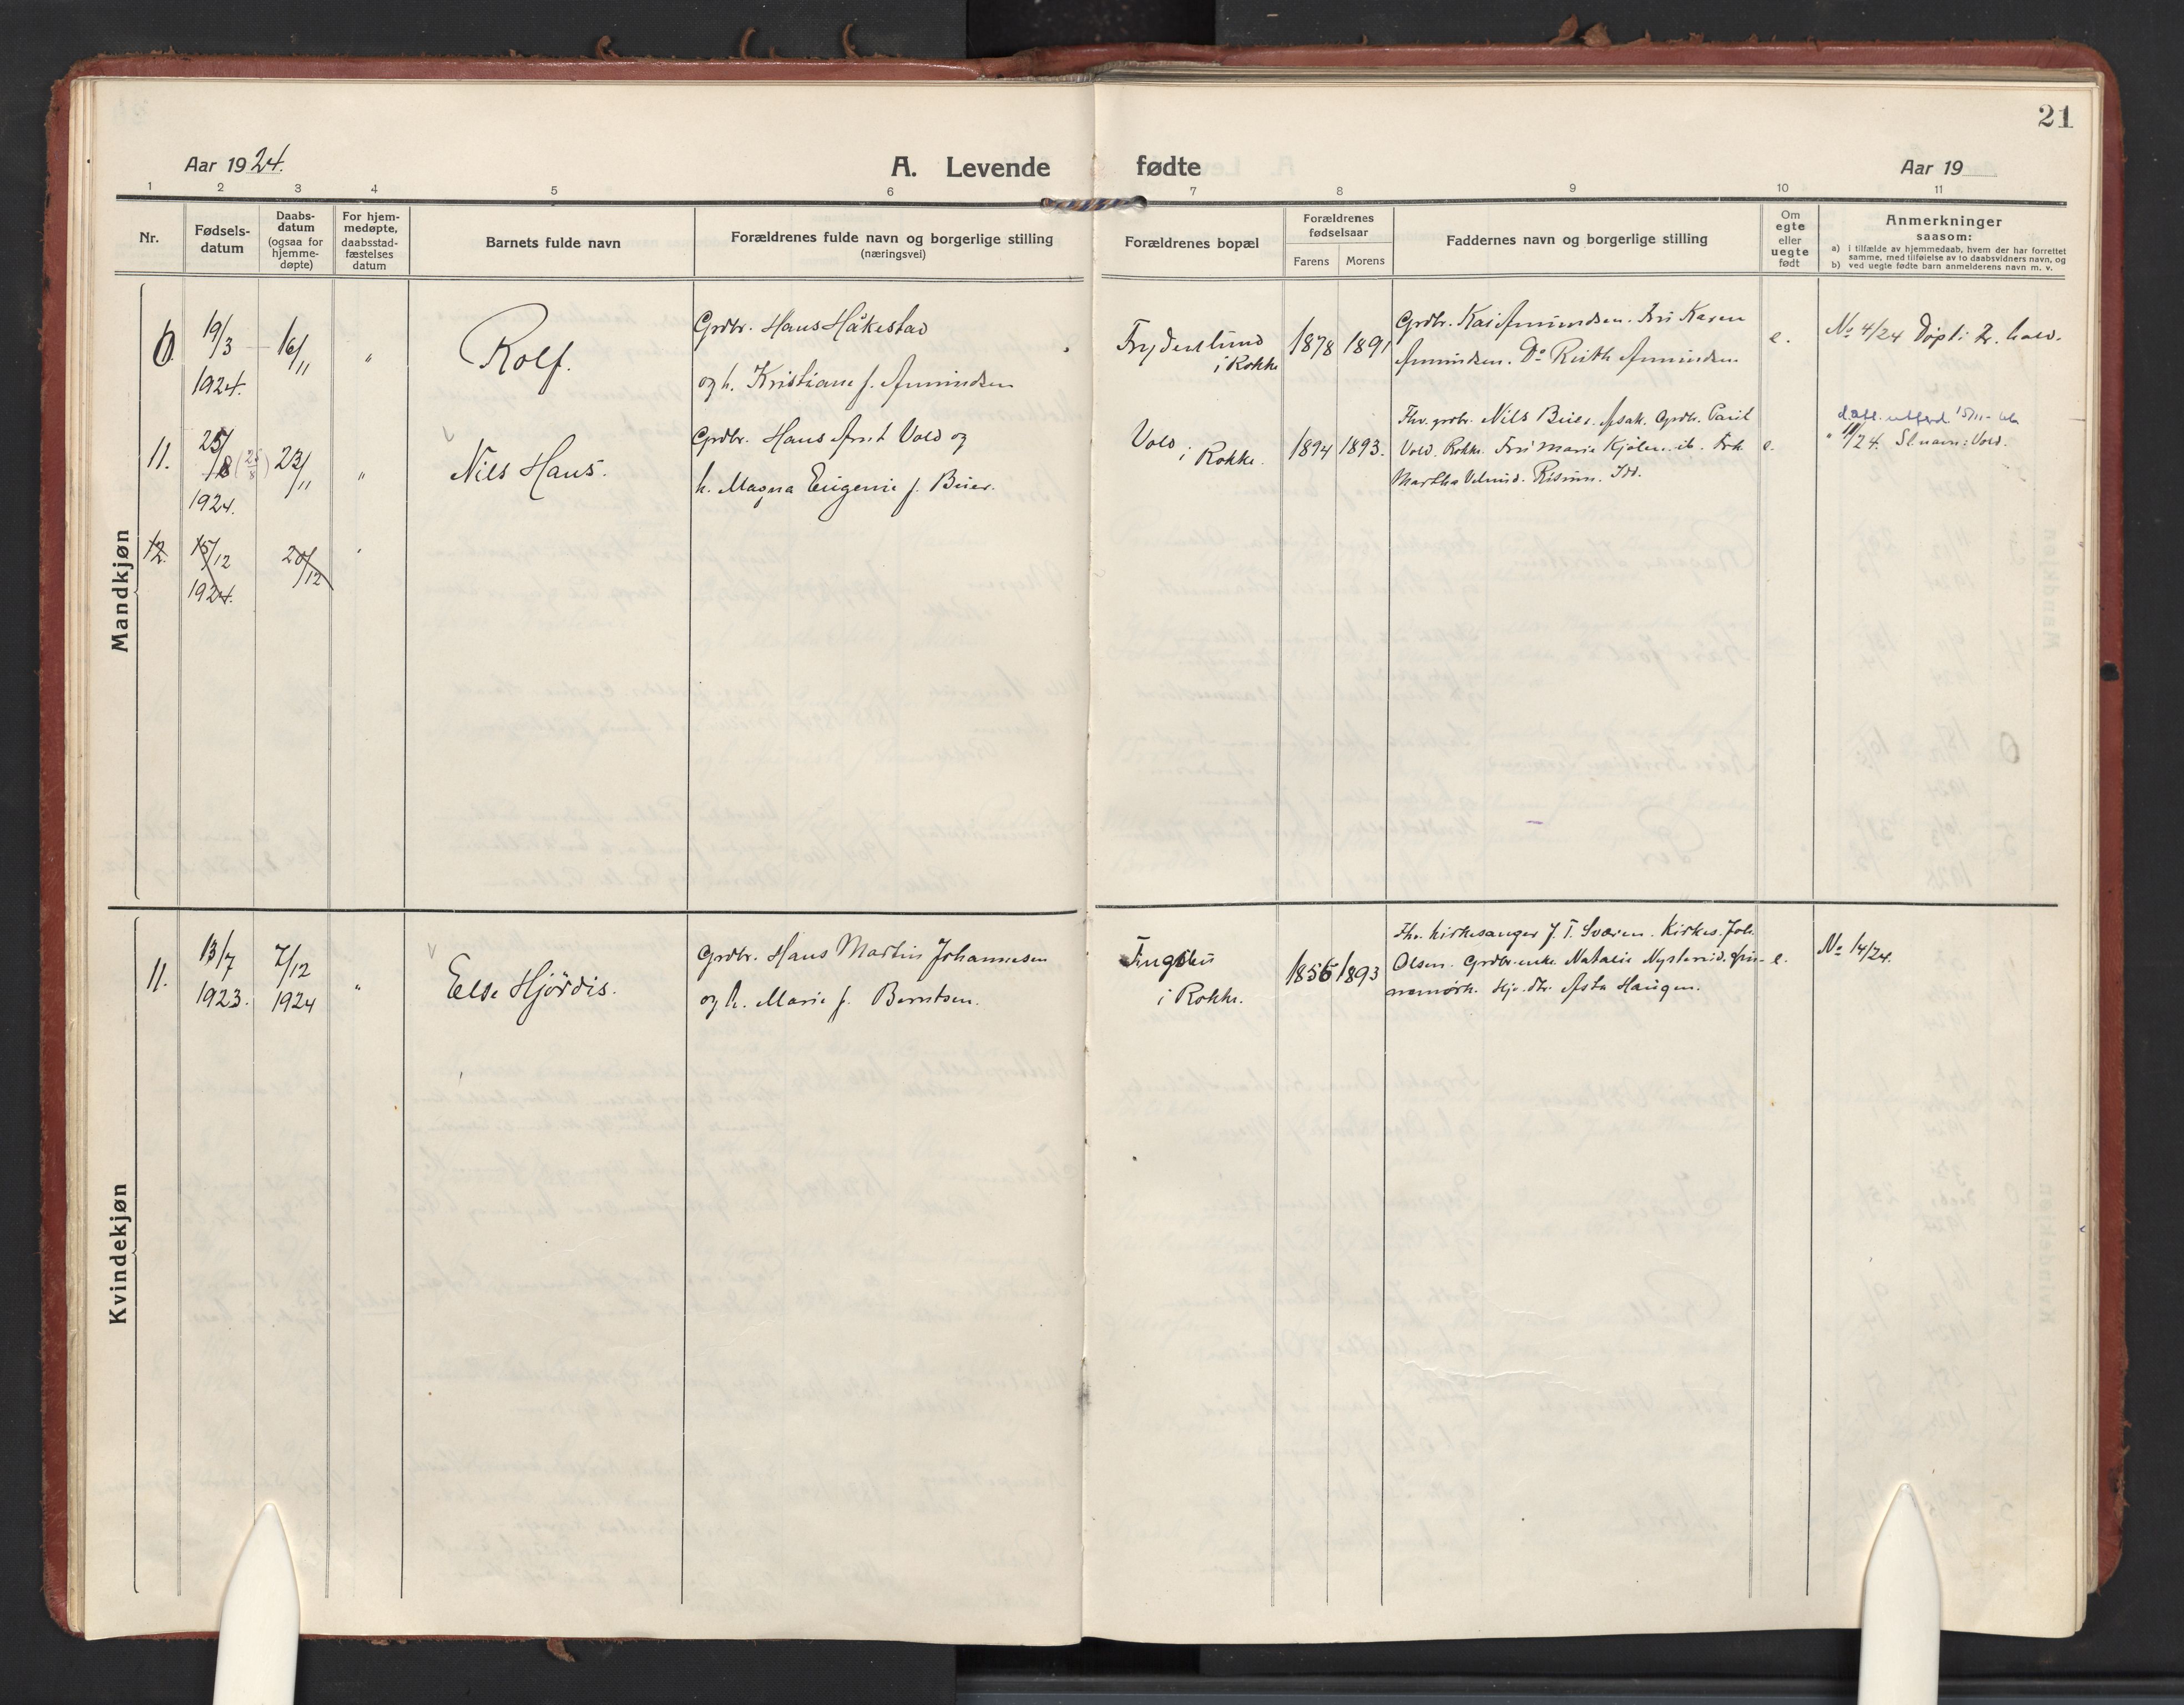 21
Aar 1924.
A. Levende fødte
Aar 19
1 2 3 4 5 6 7 8 9 10 11
Nr.
Fødsels-
datum
Daabs-
datum
(ogsaa for
hjemme-
døpte)
For hjem-
medøpte,
daabsstad-
fæstelses
datum
Barnets fulde navn
Forældrenes fulde navn og borgerlige stilling
(næringsvei)
Forældrenes bopæl
Forældrenes
fødselsaar
Farens Morens
Faddernes navn og borgerlige stilling
Om
egte
eller
uegte
født
Anmerkninger
saasom:
a) i tilfælde av hjemmedaab, hvem der har forrettet
samme, med tilføielse av to daabsvidners navn, og
b) ved uegte fødte barn anmelderens navn m. v.
Mandkjøn
0.
19/3
1924.
16/11
"
Rolf.
Grdbr. Hans Håkestad
og h. Kristiane f. Amundsen
Frydenlund
i Rokke
1878 1891
Grdbr. Kai Amundsen. Fru Karen
Amundsen. Do Ruth Amundsen
e.
No 4/24 Døpt i Fr. hald.
11.
25/8 (25/8)
1924.
23/11
"
Nils Hans.
Grdbr. Hans Arnt Vold og
h. Magna Eugenie f. Beier.
Vold i Rokke.
1894 1893.
Fhv. grdbr. Nils Beier. Asak. Grdbr. Paul
Vold. Rokke. Fru Marie Kjølen. ib. Frk.
Martha Risum. Idd.
e.
d.att. utferd. 15/11-
" 11/24. Sl.navn: Vold.
12.
15/12
1924.
20/12
"
Kvindekjøn
11.
13/7
1923.
7/12
1924
"
Else Hjørdis.
Grdbr. Hans Martin Johannesen
og h. Marie f. Berntsen.
Fugleu
i Rokke.
1856 1893
Fhv. kirkesanger J. T. Sværen. Kirkes. Joh.
Olsen. Grdbr.enke. Natalie Nysterud. Grim-
nemørk. Hjv. dtr. Asta Haugen.
e.
No 14/24.